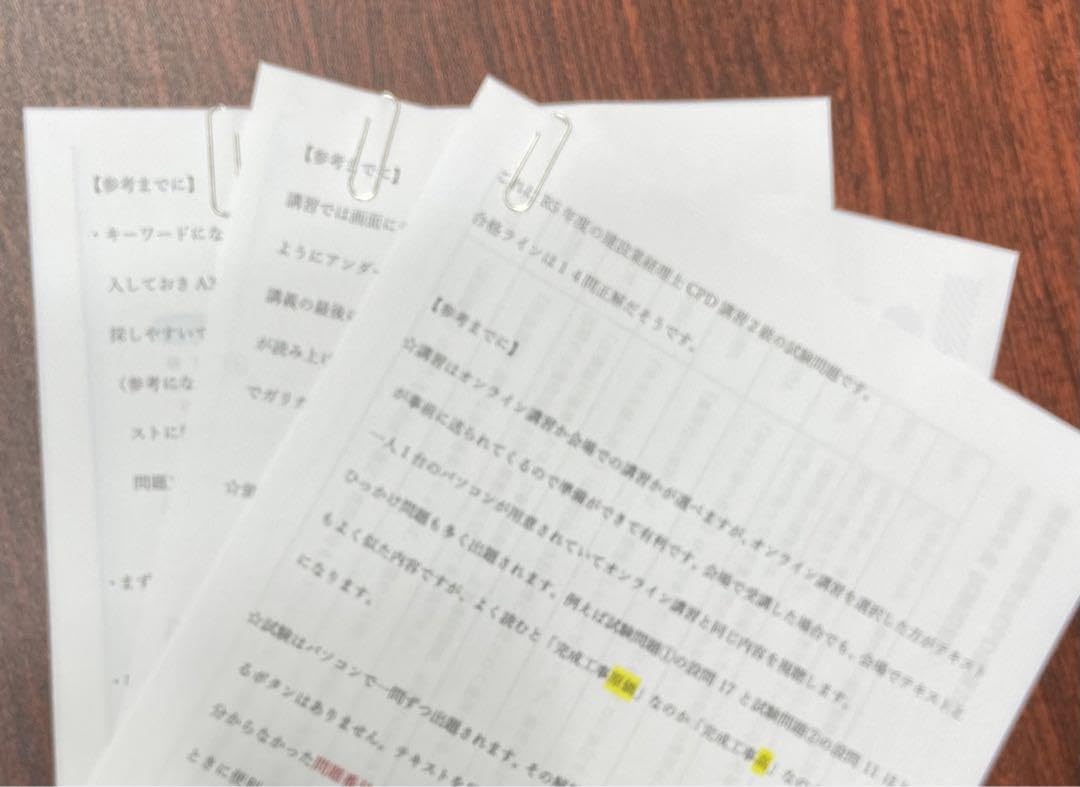 【参考までに】
・キーワードにな
入しておきA
探しやすいて
（参考にな
ストに
問題
・まず
【参考までに】
講習では画面に
ようにアンダー
講義の最後に
が読み上げ
でガリガ
☆
これは R5 年度の建設業経理士 CPD 講習 2 級の試験問題です。
合格ラインは 1 4 問正解だそうです。
【参考までに】
☆講習はオンライン講習か会場での講習かが選べますが、オンライン講習を選択した方がテキスト
が事前に送られてくるので準備ができて有利です。会場で受講した場合でも、会場でテキストと
一人 1 台のパソコンが用意されていてオンライン講習と同じ内容を視聴します。
ひっかけ問題も多く出題されます。例えば試験問題①の設問 17 と試験問題②の設問 11 はと
もよく似た内容ですが、よく読むと「完成工事原価」なのか「完成工事高」なの
になります。
☆試験はパソコンで一問ずつ出題されます。その解
るボタンはありません。テキストを
分からなかった問題番号
ときに便利